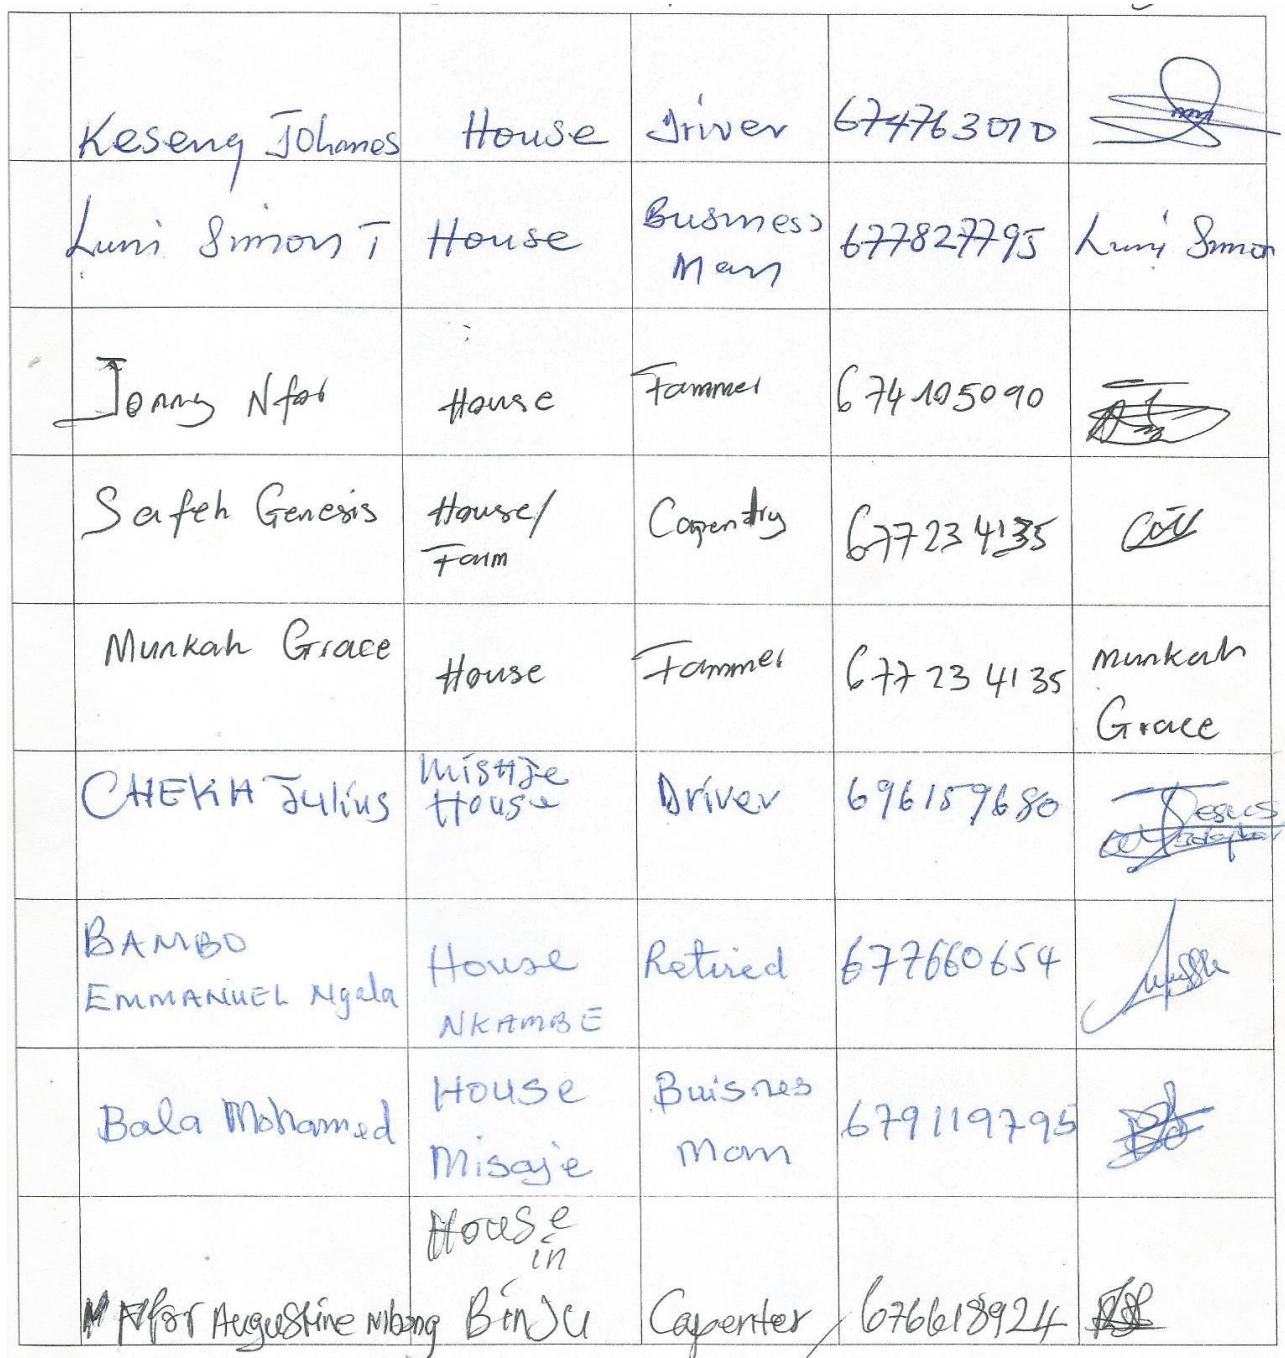 Keseng Johanes House Driver 674763010
Luni Simon T House Business Man 677827795 Luni Simon
Jonny Nfor House Fammer 674105090
Safeh Genesis House/ Farm Capentry 677234135
Munkah Grace House Fammer 677234135 Munkah Grace
CHEKH Julius Mistije House Driver 696159680
BAMBO EMMANUEL Ngala House NKAMBE Retired 677660654
Bala Mohamed House Misaje Buisnes Man 679119795
Nfor Augustine Mbong House in Binju Capenter 676618924